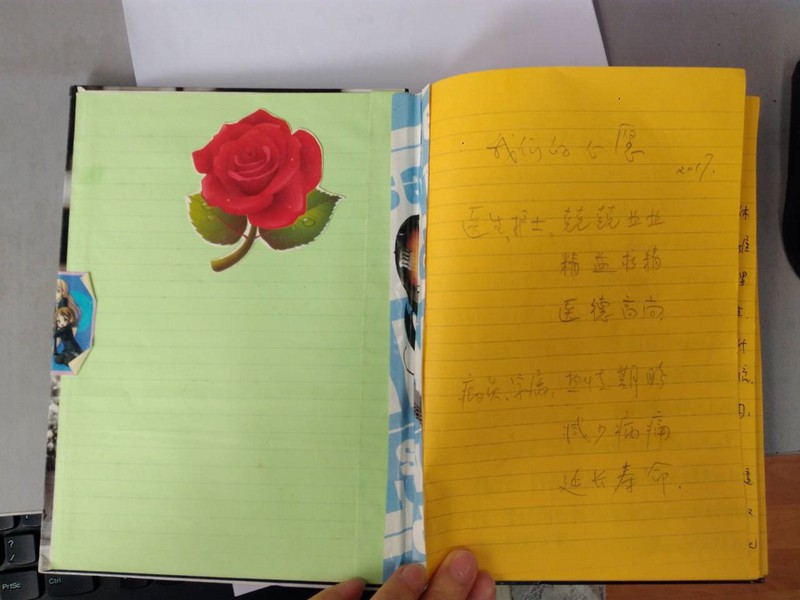 我们的心愿
2017.
医生、护士、兢兢业业
精益求精
医德高尚
病员、家属、热切期盼
减少病痛
延长寿命.
PrtSc
Ctrl